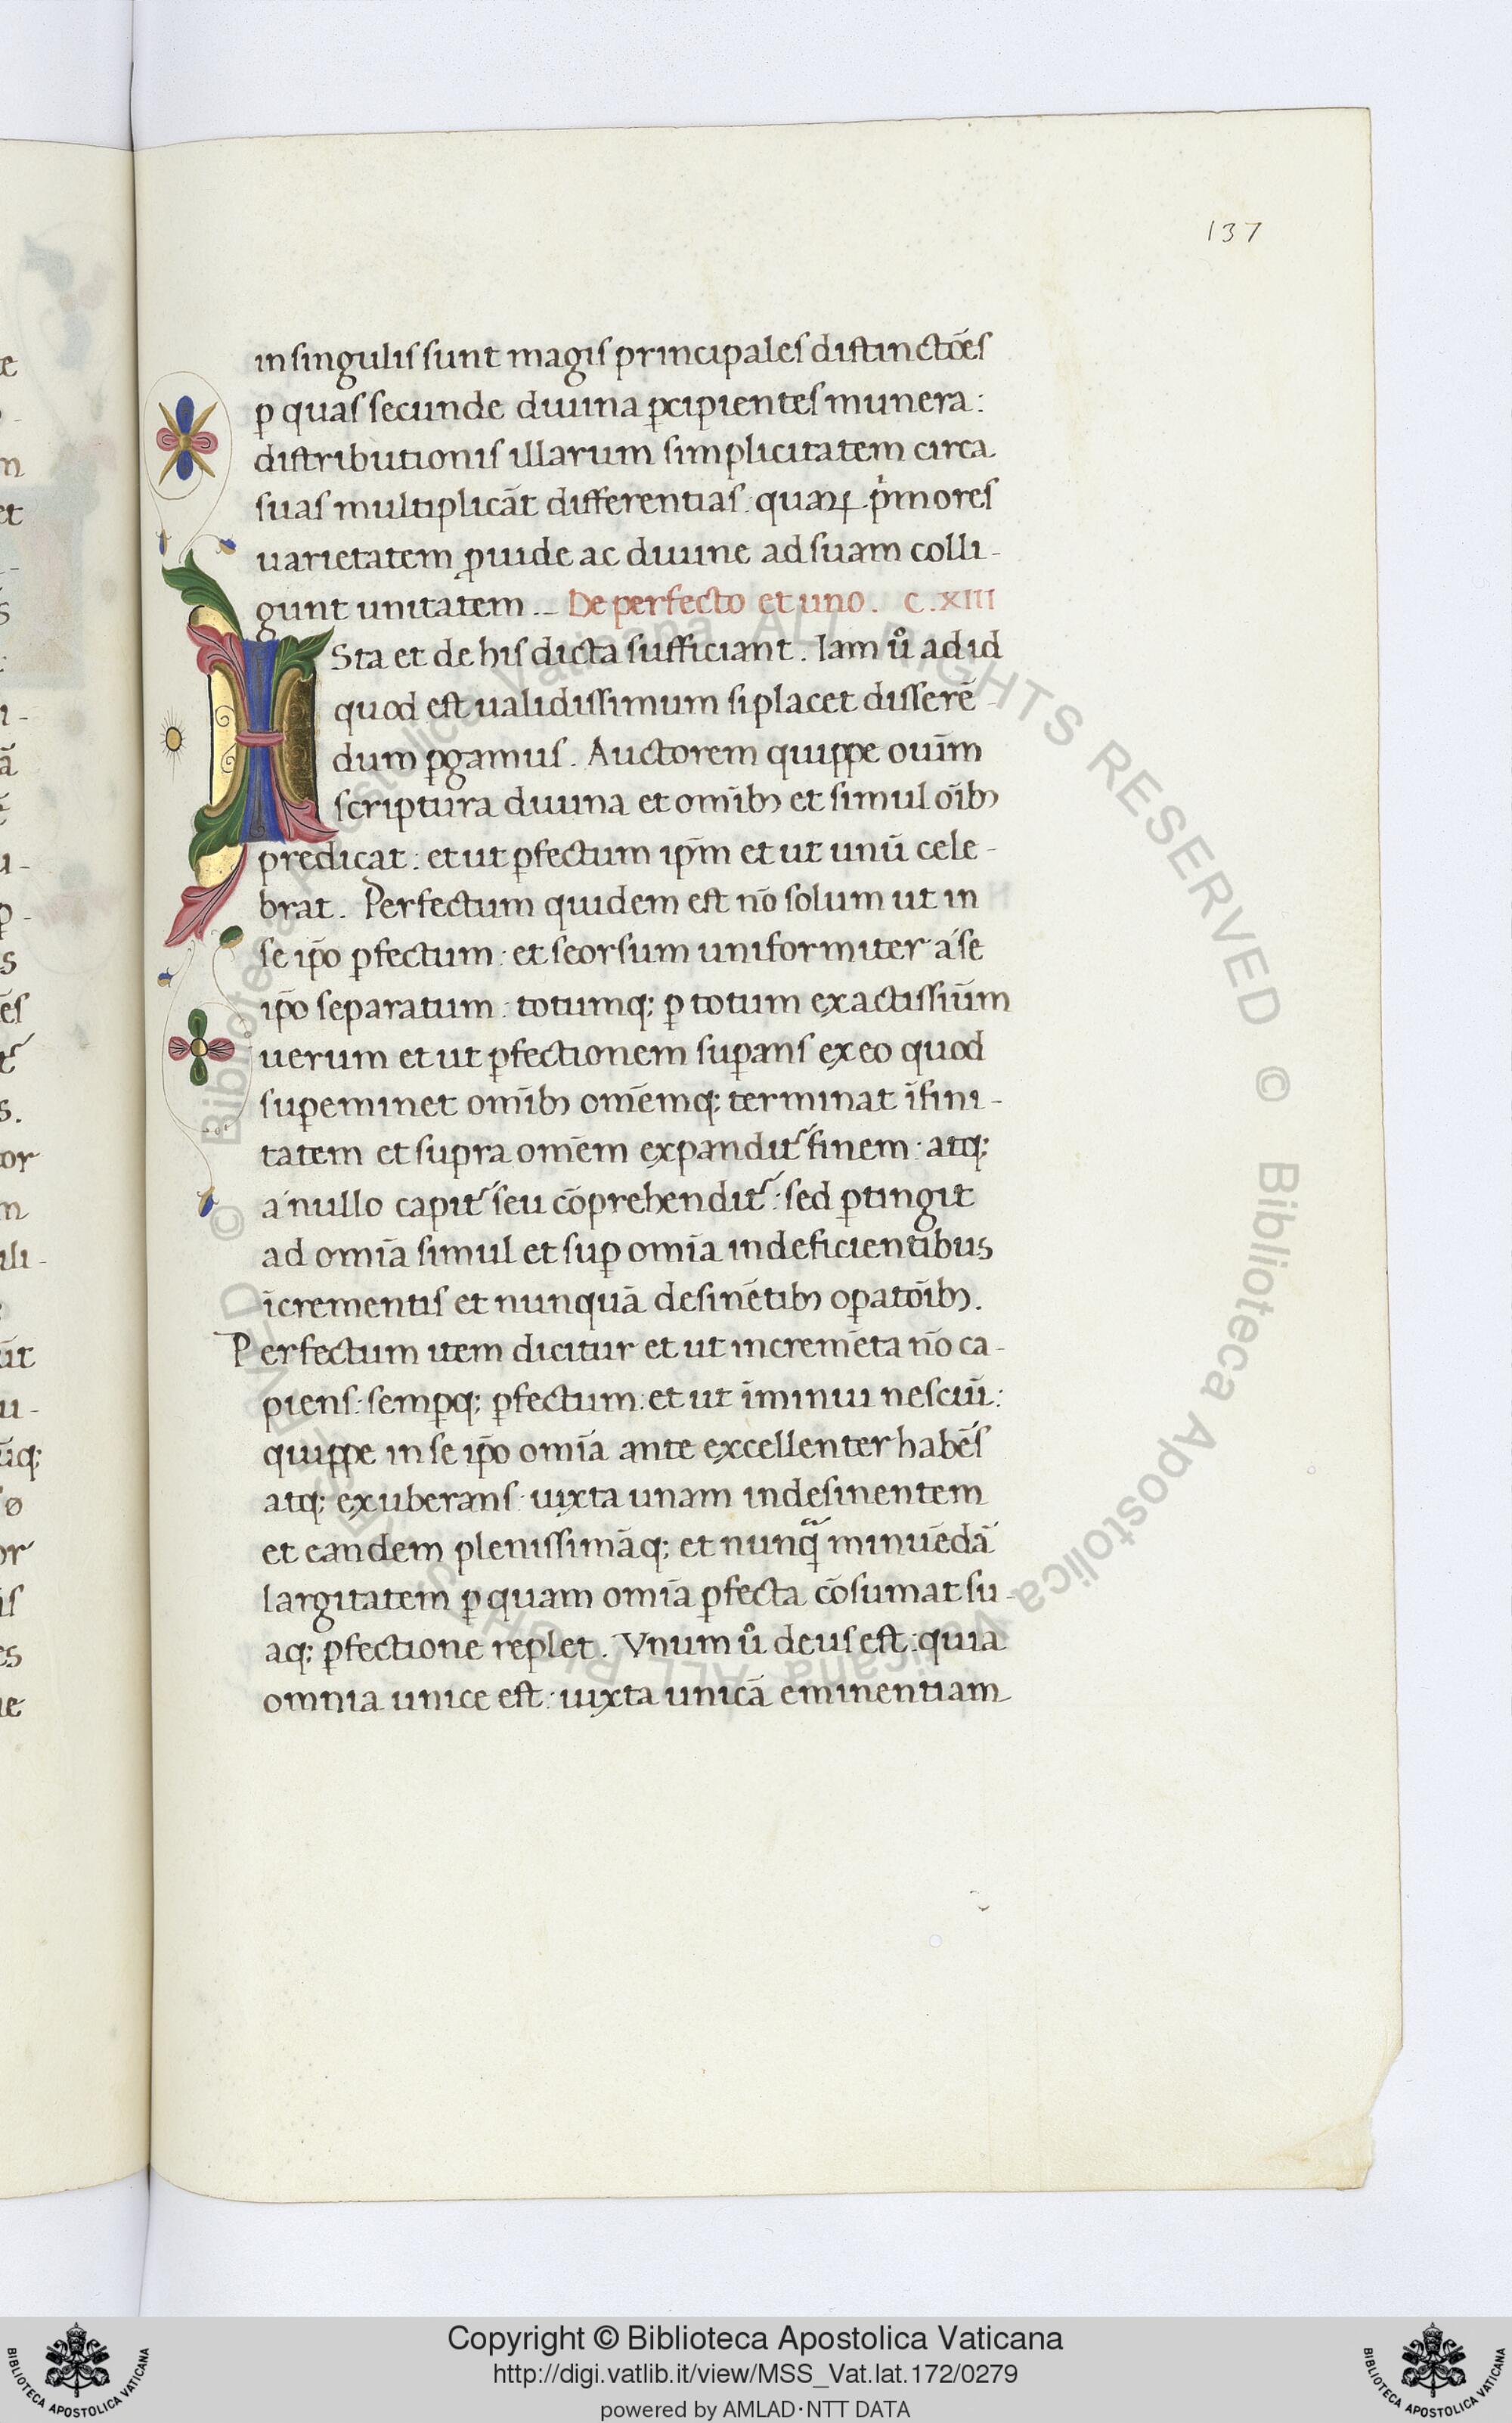 137
in singulis sunt magis principales distinctões
ꝑ quas secunde diuina ꝑcipientes munera:
distributionis illarum simplicitatem circa
suas multiplicāt differentias: quaꝝ pͥmores
uarietatem ꝓuide ac diuine ad suam colli-
gunt unitatem._ De perfecto et uno. C.XIII
ISta et de his dicta sufficiant. Iam uͦ ad id
quod est ualidissimum si placet disserē-
dum ꝑgamus. Auctorem quippe ouīm
scriptura diuina et omībꝫ et simul oībꝫ
predicat: et ut ꝑfectum ip̄m et ut unū cele-
brat. Perfectum quidem est nō solum ut in
se ip̄o ꝑfectum: et seorsum uniformiter a se
ip̄o separatum: totumq; ꝑ totum exactissiūm
uerum et ut ꝑfectionem suꝑans ex eo quod
suꝑeminet omībꝫ omēmq; terminat īfini-
tatem et supra omēm expandit᷑ finem: atq;
a nullo capit᷑ seu cōprehendit᷑: sed ꝑtingit
ad omīa simul et suꝑ omīa indeficientibus
īcrementis et nunquā desinētibꝫ oꝑatōibꝫ.
Perfectum item dicitur et ut incremēta nō ca-
piens: semꝑq; ꝑfectum: et ut īminui nesciū:
quippe in se ip̄o omīa ante excellenter habēs
atq; exuberans: iuxta unam indesinentem
et eandem plenissimāq; et nunq̄ minuēdā
largitatem ꝑ quam omīa ꝑfecta cōsumat su-
aq; ꝑfectione replet. Vnum uͦ deus est: quia
omnia unice est: iuxta unicā eminentiam
Copyright © Biblioteca Apostolica Vaticana
http://digi.vatlib.it/view/MSS_Vat.lat.172/0279
powered by AMLAD·NTT DATA
BIBLIOTECA APOSTOLICA VATICANA
BIBLIOTECA APOSTOLICA VATICANA